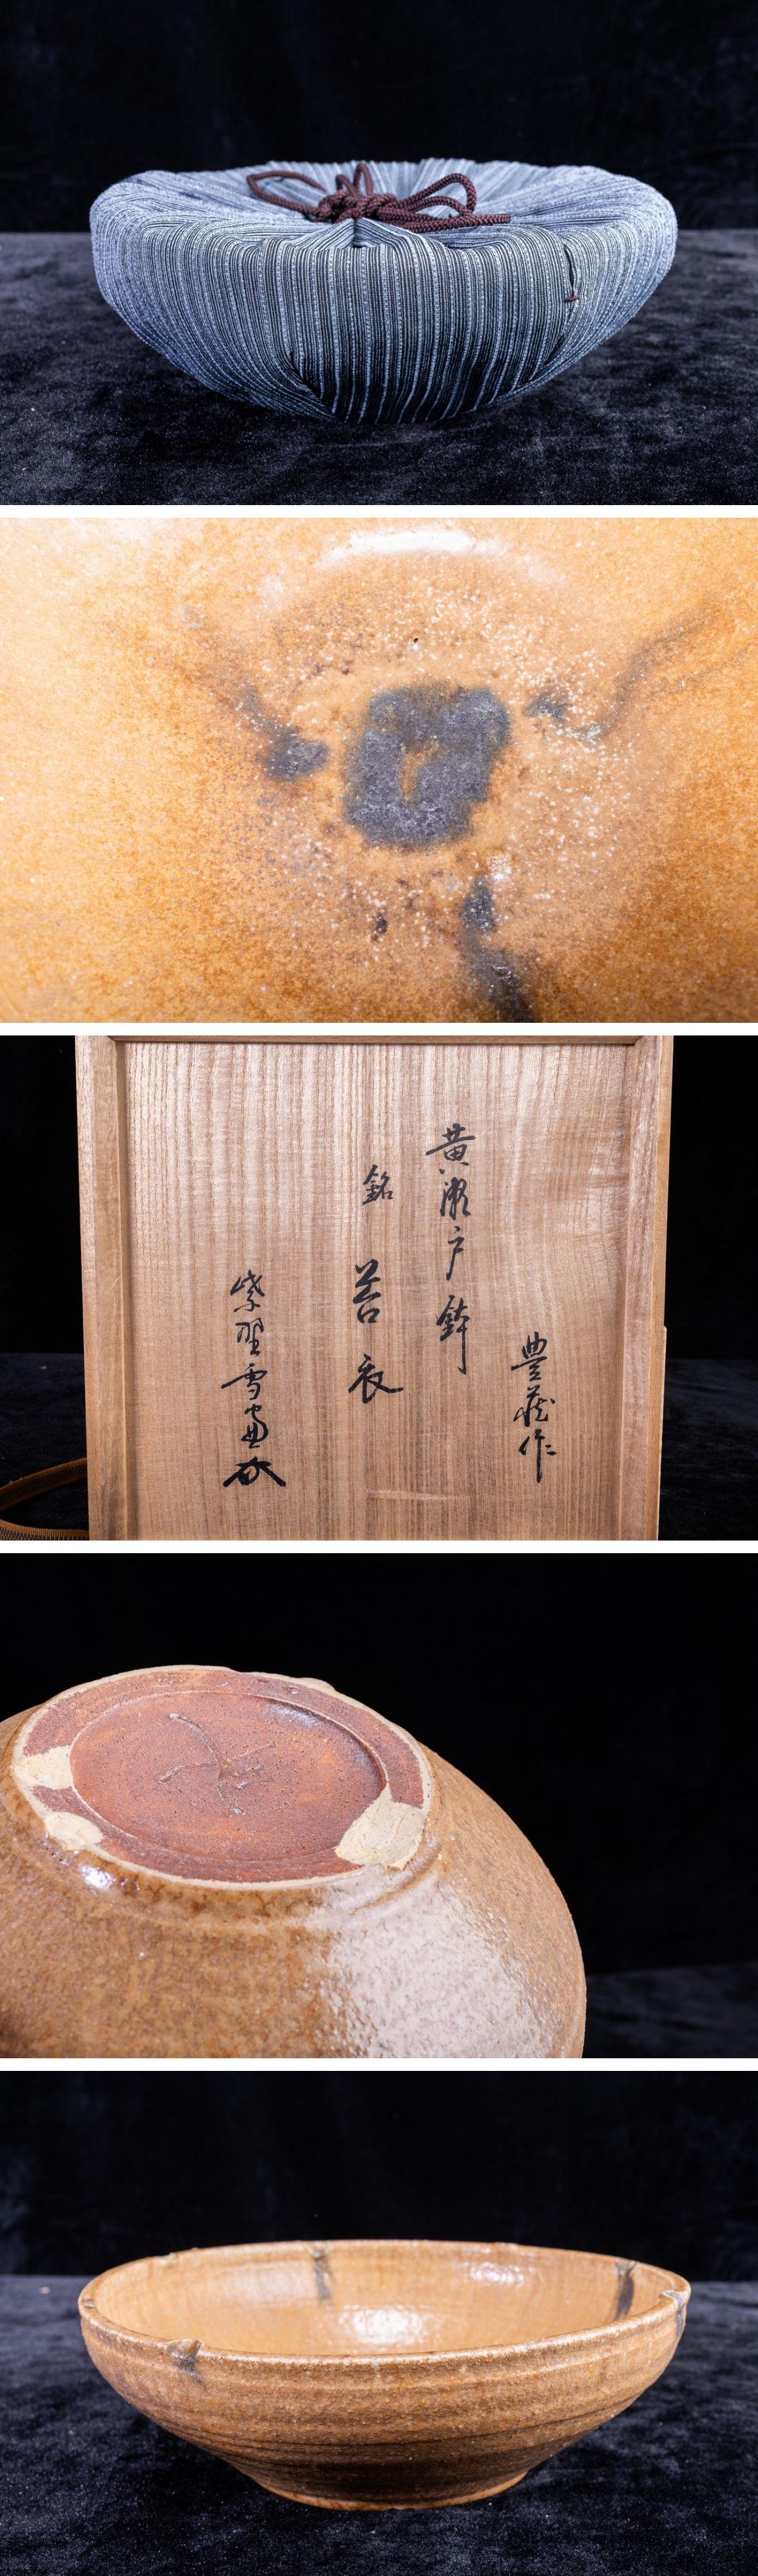 豊蔵作
黄瀬戸鉢
銘 苔衣
紫野雪窓